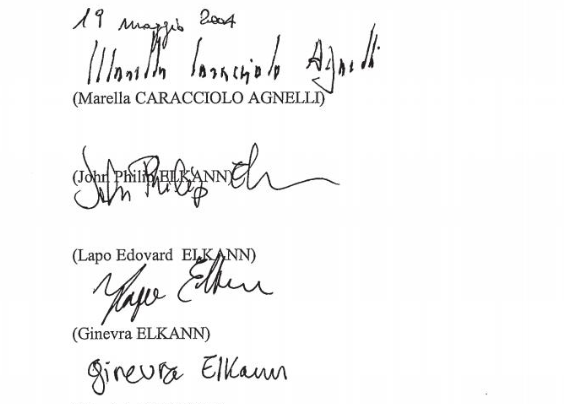 19 maggio 2004
Marella Caracciolo Agnelli
(Marella CARACCIOLO AGNELLI)
(John Philip ELKANN)
John Philip Elkann
(Lapo Edovard ELKANN)
Lapo Elkann
(Ginevra ELKANN)
Ginevra Elkann